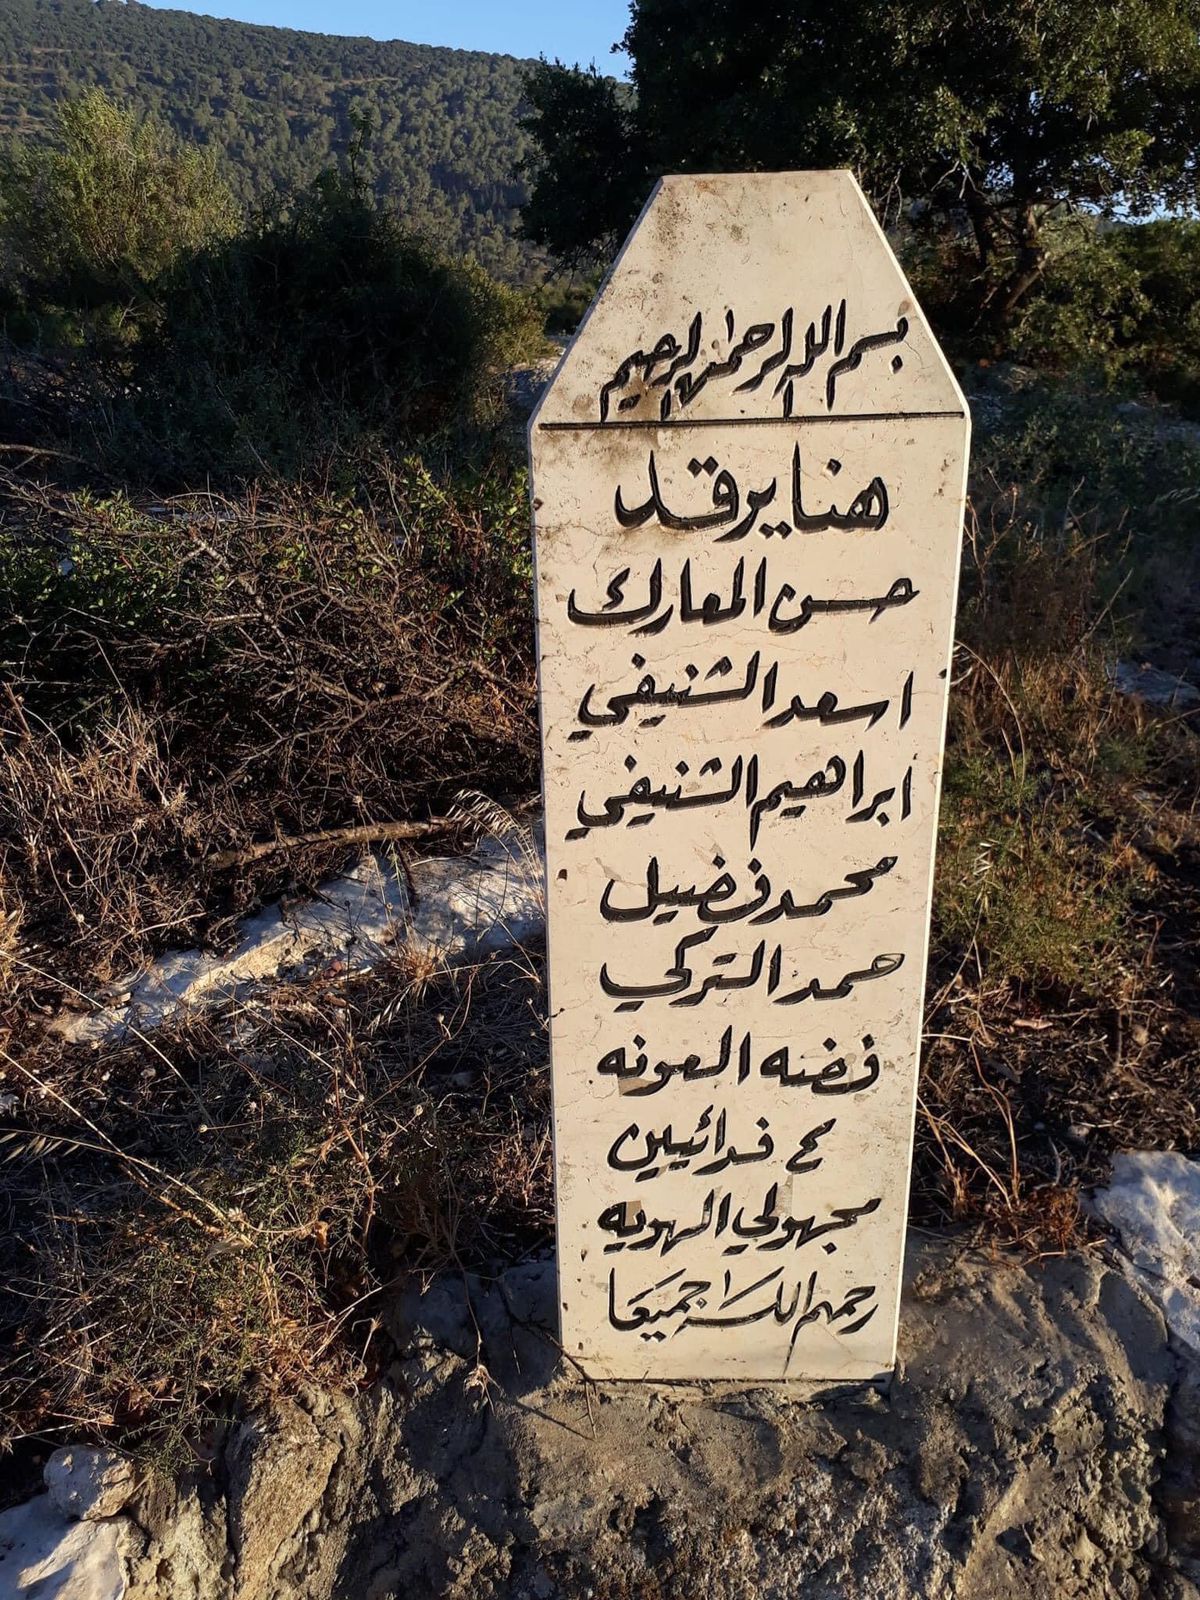 بسم الله الرحمن الرحيم
هنا يرقد
حسن المعارك
اسعد الشنيفي
ابراهيم الشنيفي
محمد فضيل
حمد التركي
فضه العونه
٤ فدائيين
مجهولي الهويه
رحمهم الله جميعا